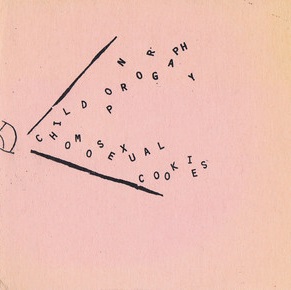 CHILD PORNOGRAPHY
HOMOSEXUAL
COOKIES